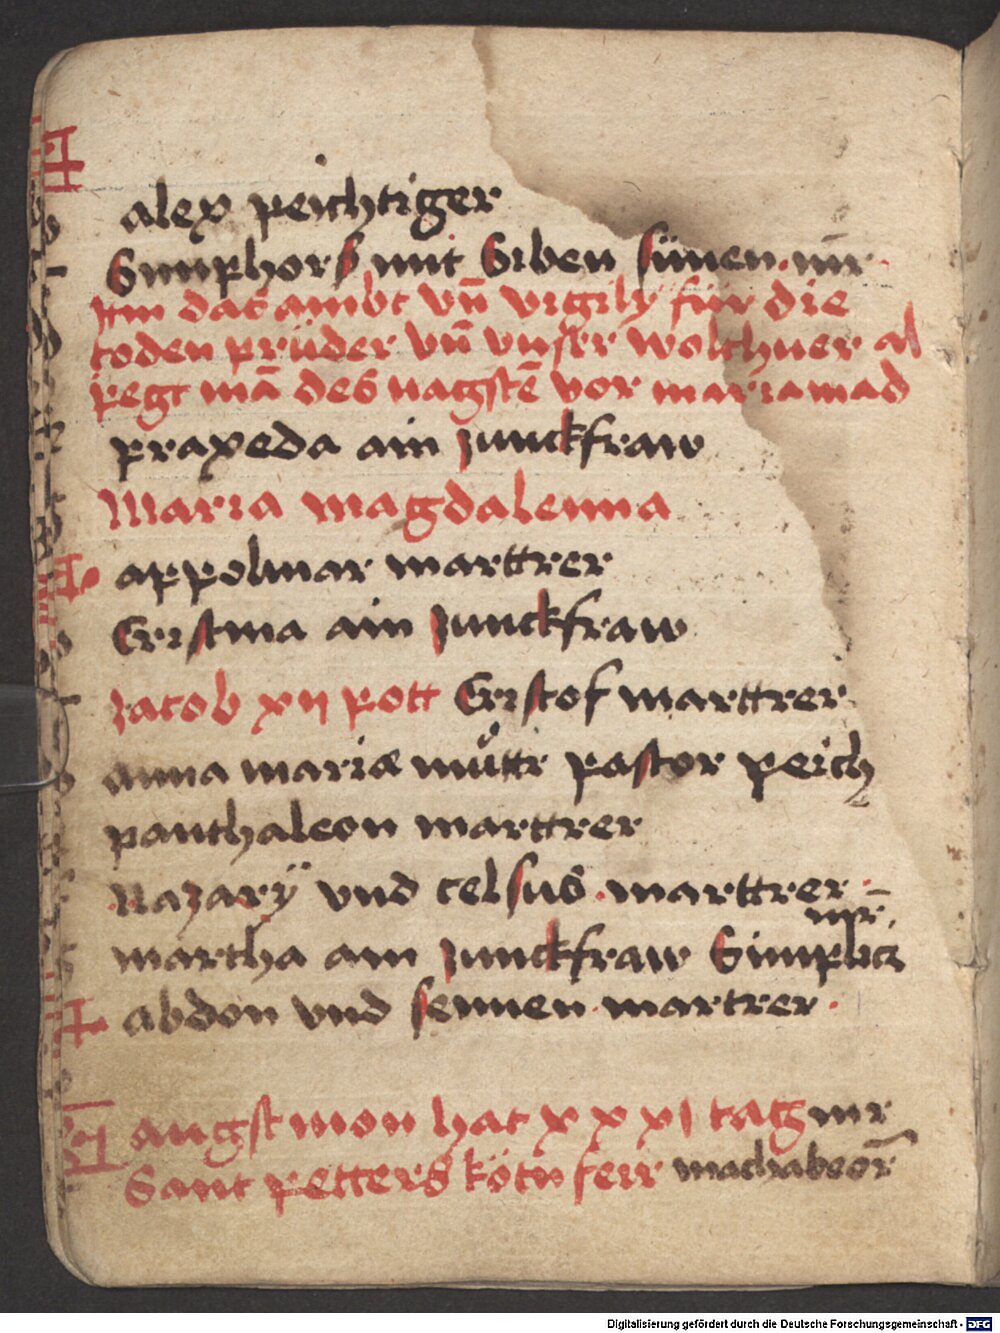 alex peichtiger
Simphors mit Siben sünen mr̄
Itm das ambt vn̄ vigily für die
toden prüder vn̄ vnser wolthuer al
pegt mā des nagstē vor mariamad
praxeda ain Junckfraw
Maria magdalenna
appolinar marttrer
Cristina ain Junckfraw
Jacob xij pott Cristof marttrer
anna maria mütr pastor peich
panthaleon marttrer
Nazarÿ vnd celsus marttrer
mr̄
martha ain Junckfraw Simplici
abdon vnd sennen martrer
augst mon hat xxxj tag mr
Sant petters kötn feir machabeor̄
Digitalisierung gefördert durch die Deutsche Forschungsgemeinschaft - DFG